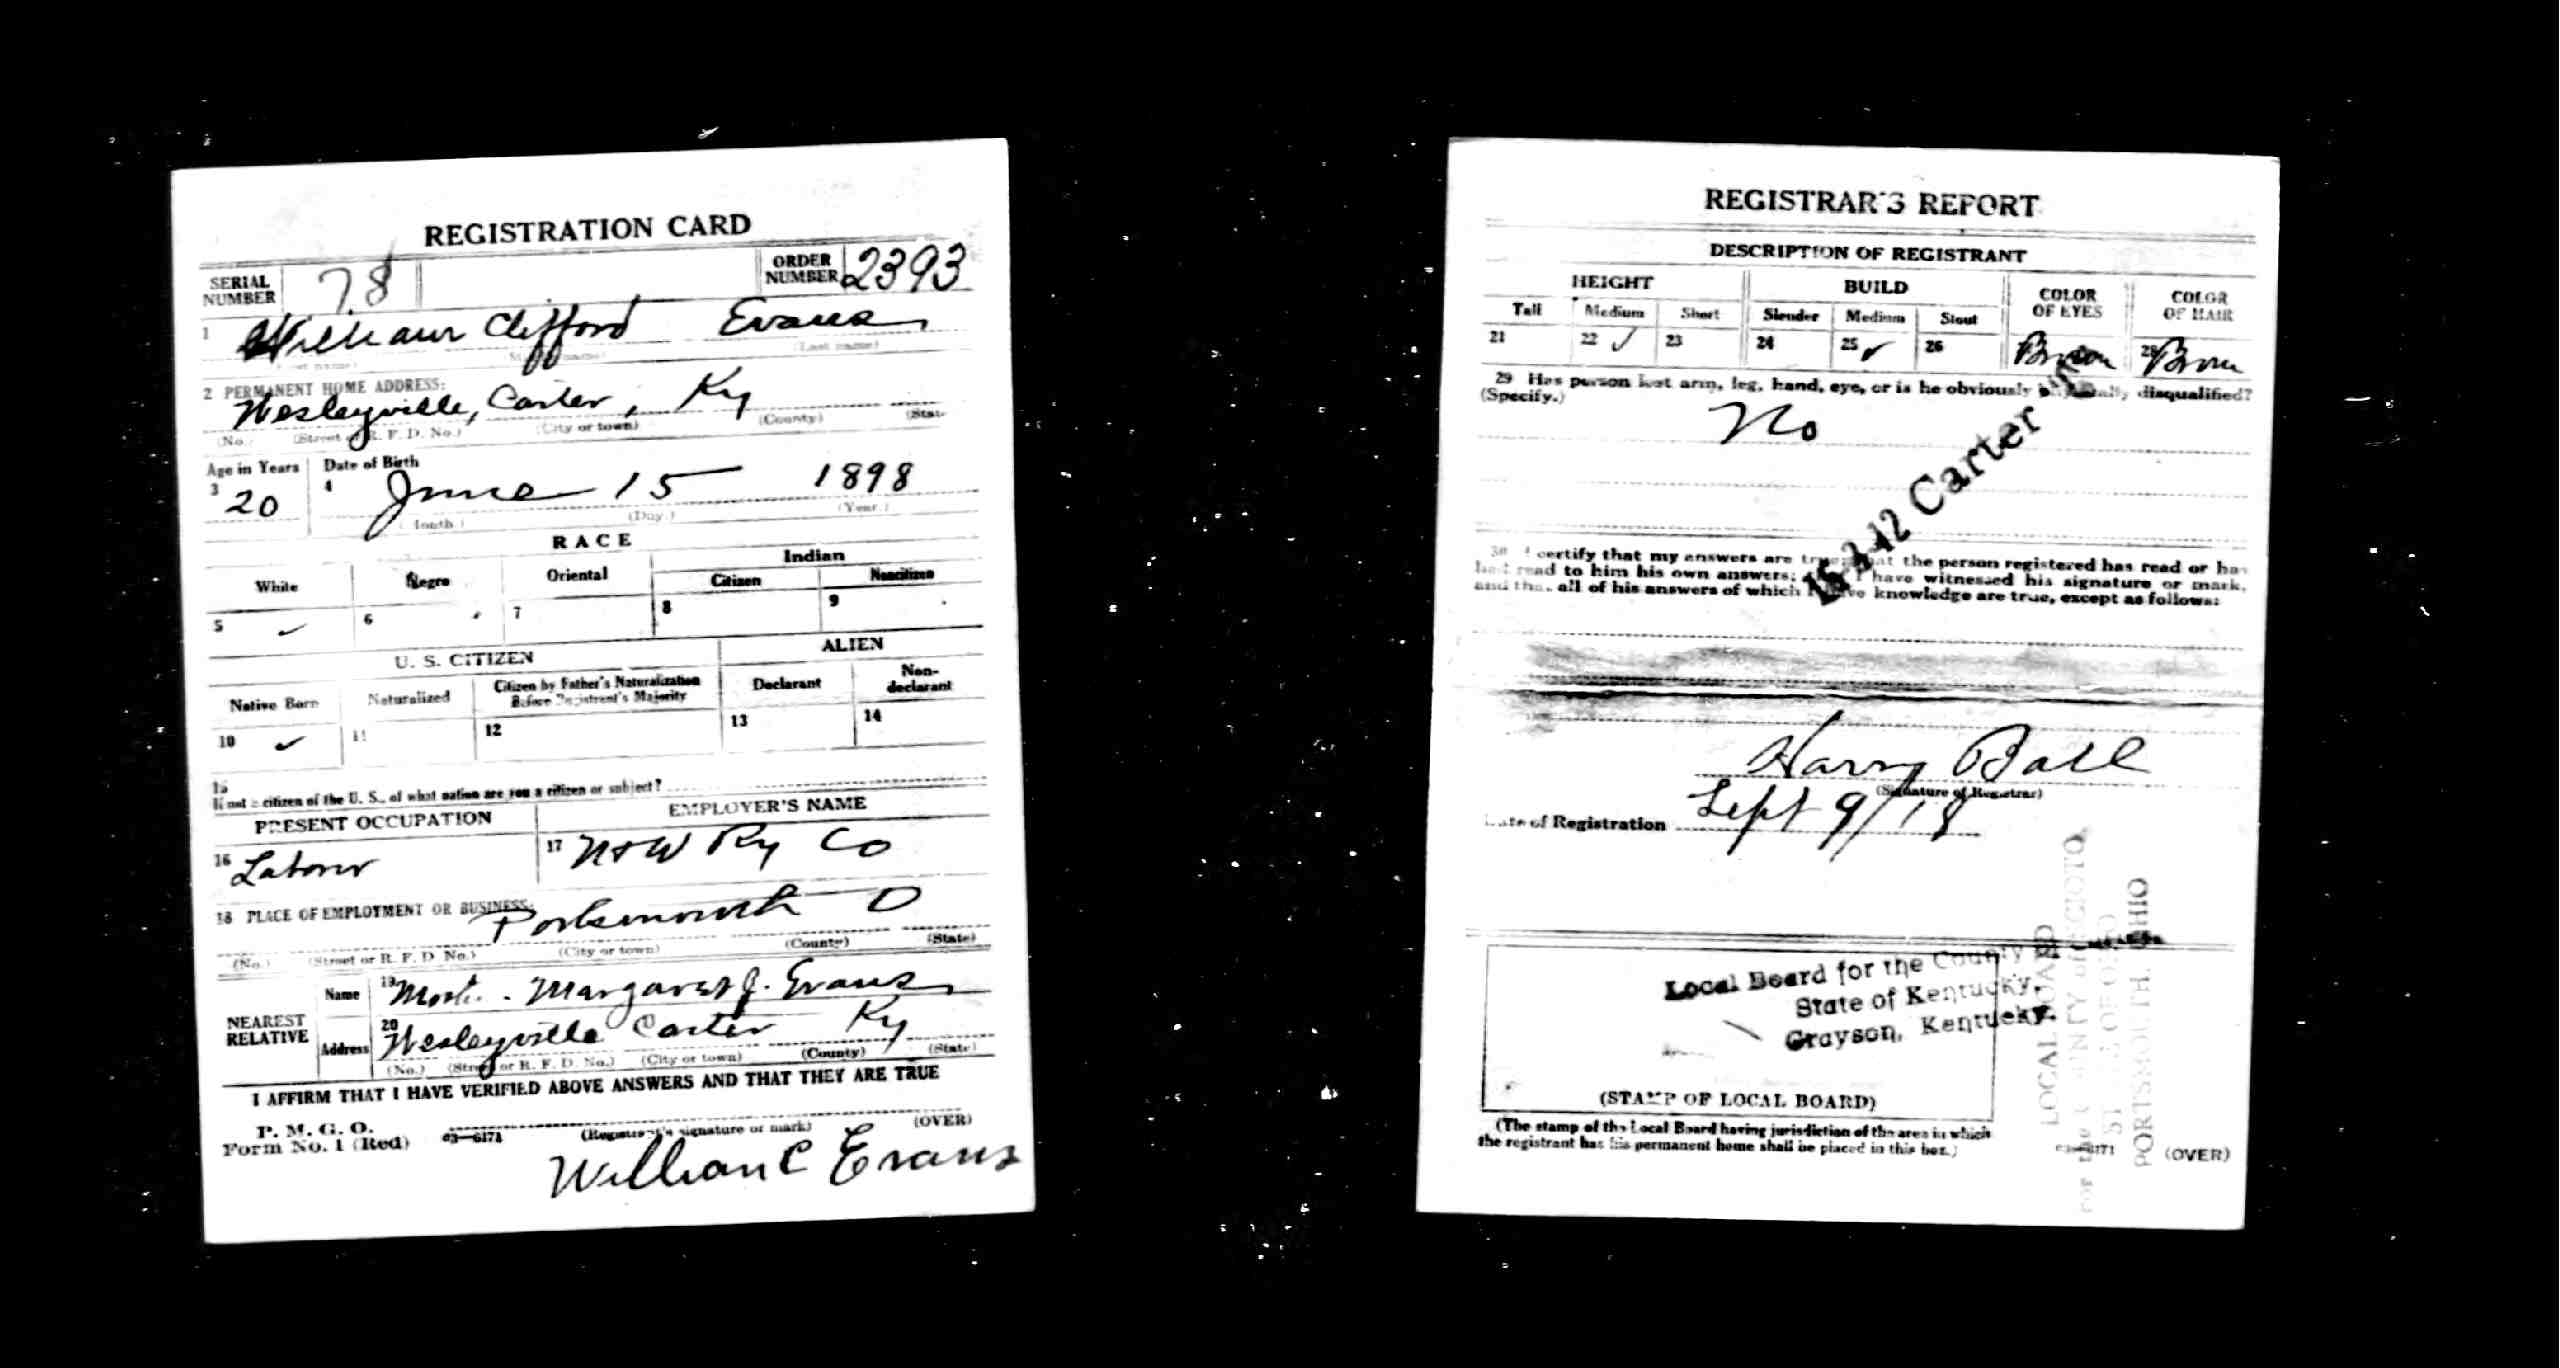 REGISTRATION CARD
SERIAL NUMBER 78 ORDER NUMBER 2393
1 William Clifford Evans
(Last name)
2 PERMANENT HOME ADDRESS:
Wesleyville, Carter, Ky
(No.) (Street or R. F. D. No.) (City or town) (County) (State
Age in Years Date of Birth
3 20 4 June 15 1898
(Month.) (Day.) (Year.)
RACE
White Negro Oriental Indian
Citizen Noncitizen
5 ✓ 6 7 8 9
U. S. CITIZEN ALIEN
Native Born Naturalized Citizen by Father's Naturalization Before Registrant's Majority Declarant Non-declarant
10 ✓ 11 12 13 14
15
If not a citizen of the U. S., of what nation are you a citizen or subject?
PRESENT OCCUPATION EMPLOYER'S NAME
16 Labour 17 N & W Ry Co
18 PLACE OF EMPLOYMENT OR BUSINESS:
Portsmouth O
(No.) (Street or R. F. D. No.) (City or town) (County) (State)
NEAREST RELATIVE
Name 19 Moth. Margaret J. Evans
Address 20 Wesleyville Carter Ky
(No.) (Street or R. F. D. No.) (City or town) (County) (State)
I AFFIRM THAT I HAVE VERIFIED ABOVE ANSWERS AND THAT THEY ARE TRUE
P. M. G. O.
Form No. 1 (Red) 03—6171 (Registrant's signature or mark) (OVER)
William C Evans
REGISTRAR'S REPORT
DESCRIPTION OF REGISTRANT
HEIGHT BUILD COLOR OF EYES COLOR OF HAIR
Tall Medium Short Slender Medium Stout
21 22 ✓ 23 24 25 ✓ 26 Brown 28 Brown
29 Has person lost arm, leg, hand, eye, or is he obviously physically disqualified?
(Specify.)
No
Carter
30 I certify that my answers are true, that the person registered has read or has
had read to him his own answers; that I have witnessed his signature or mark,
and that all of his answers of which I have knowledge are true, except as follows:
Harry Ball
(Signature of Registrar)
Date of Registration Sept 9/18
Local Board for the County
State of Kentucky,
Grayson, Kentucky.
(STAMP OF LOCAL BOARD)
(The stamp of the Local Board having jurisdiction of the area in which
the registrant has his permanent home shall be placed in this box.)
03—6171 (OVER)
LOCAL BOARD
PORTSMOUTH, OHIO